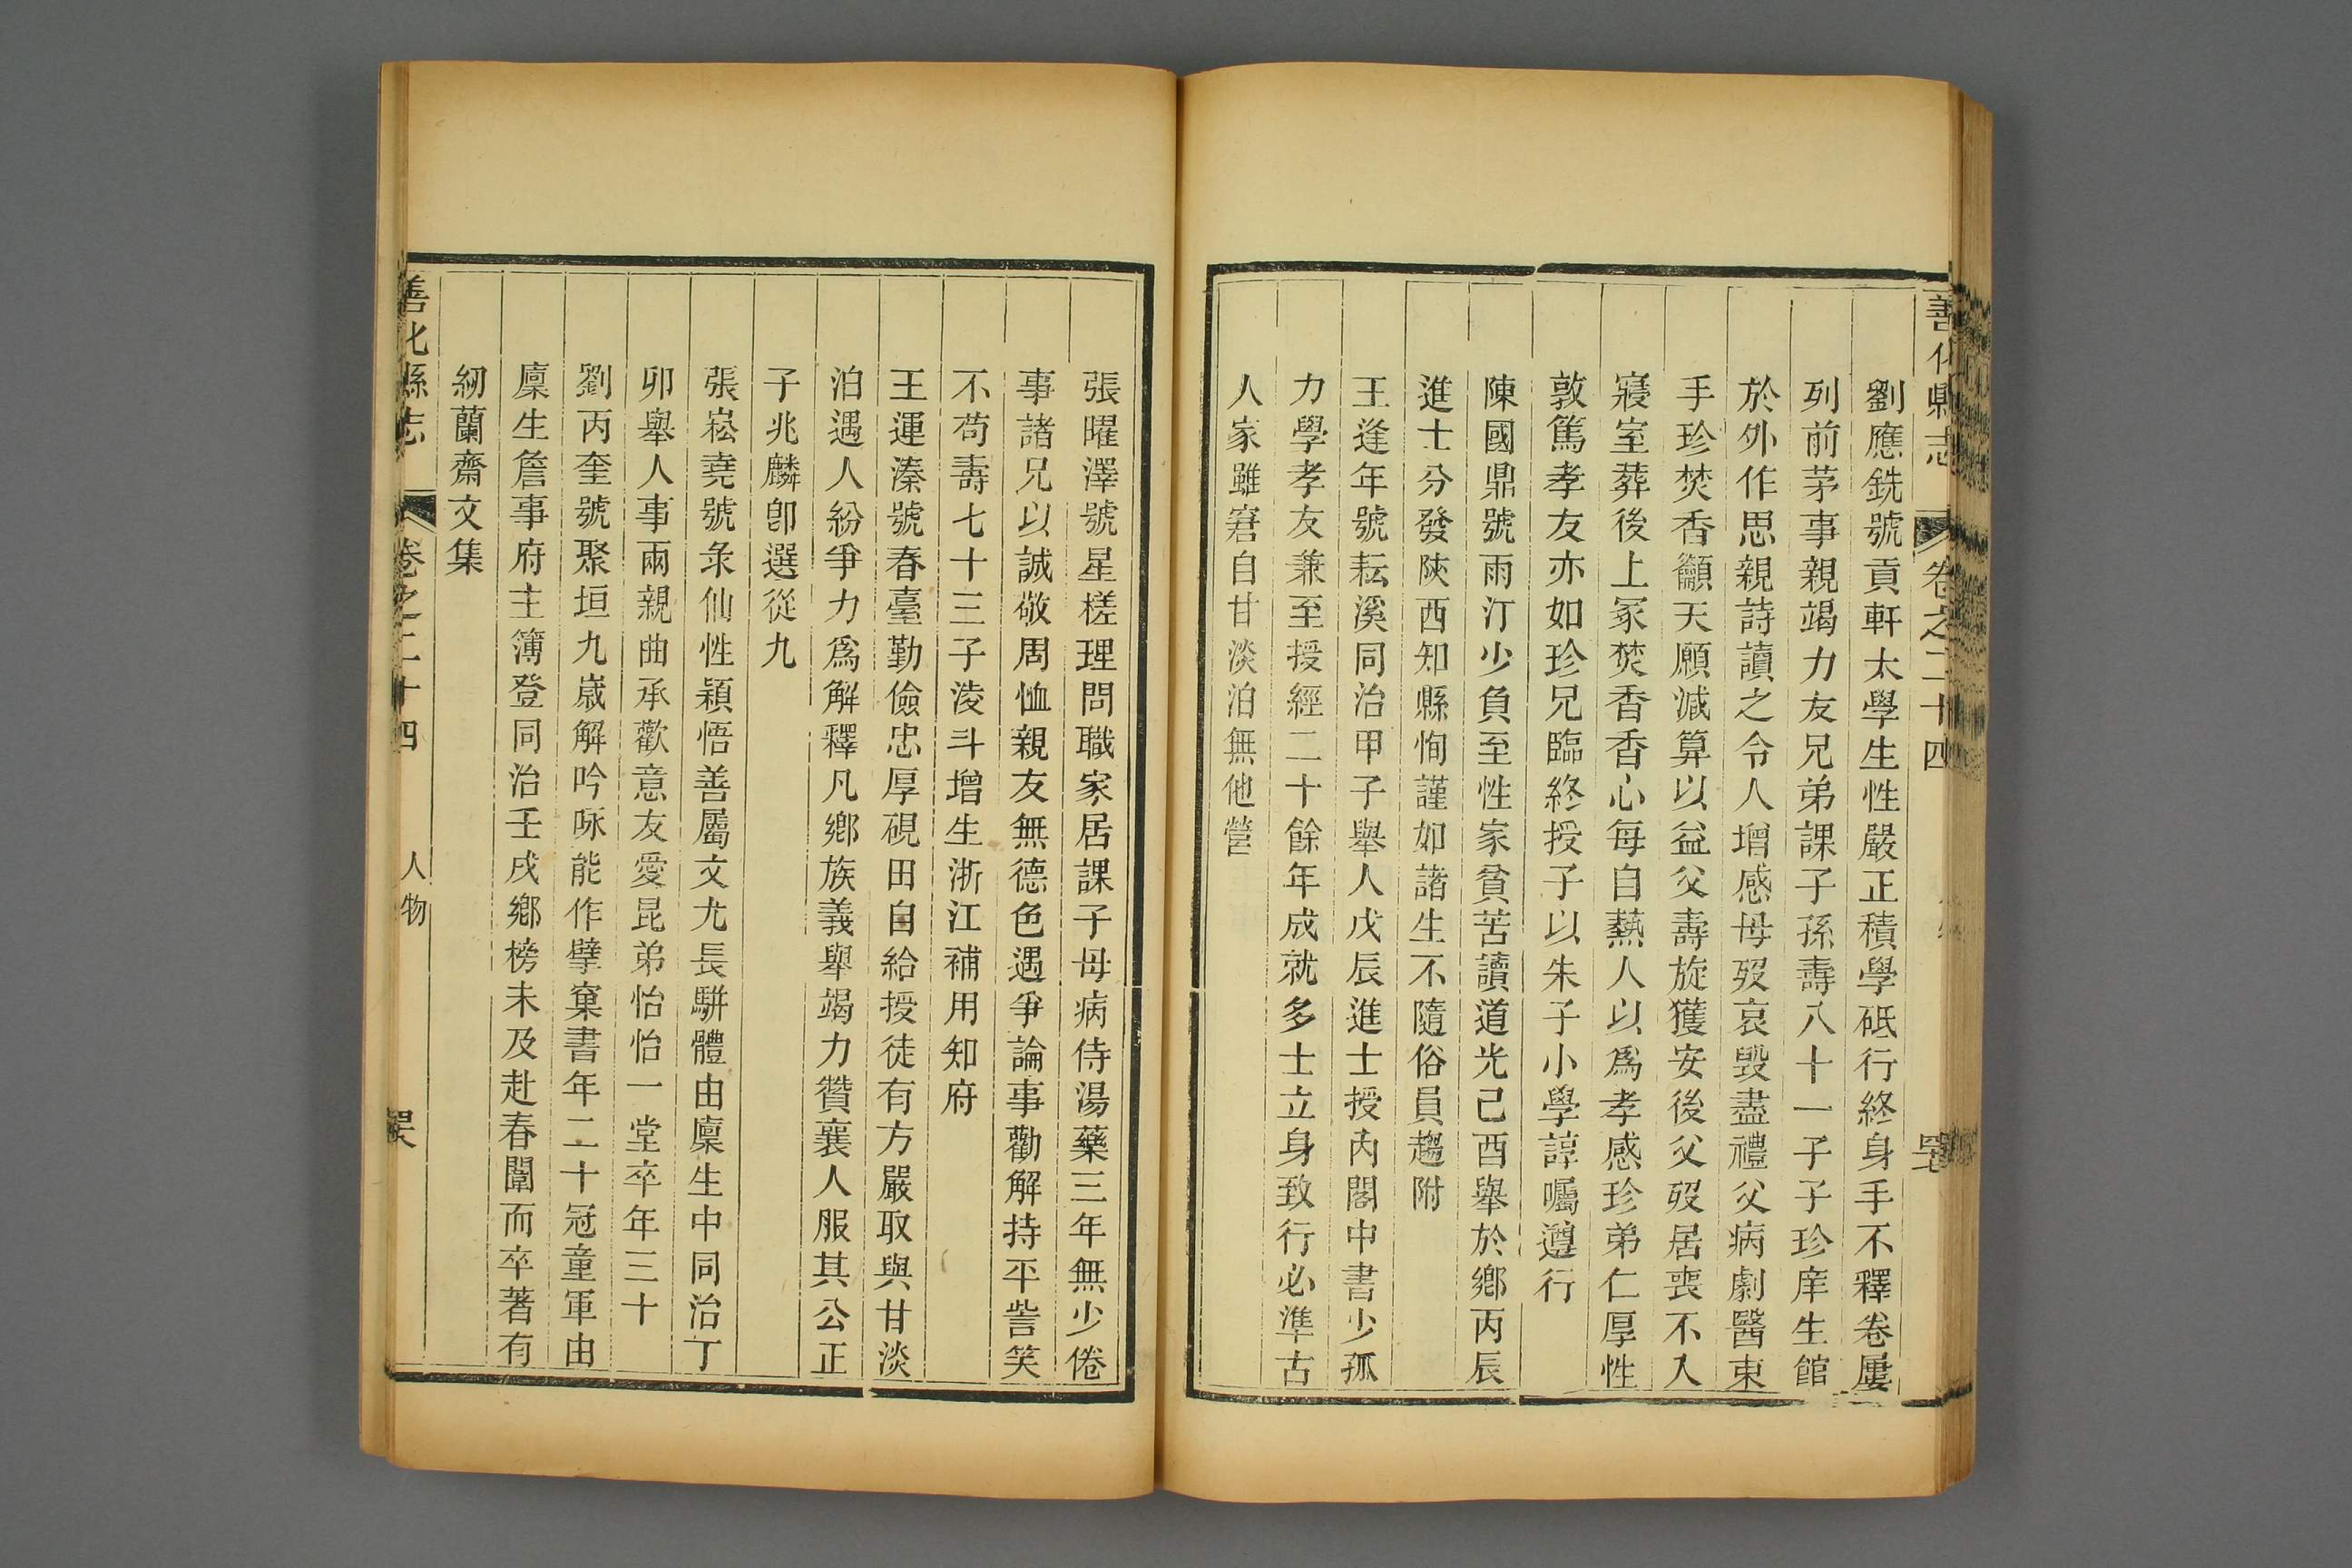 善化縣志 卷之二十四
劉應銑號貢軒太學生性嚴正積學砥行終身手不釋卷屢
列前茅事親竭力友兄弟課子孫壽八十一子子珍庠生館
於外作思親詩讀之令人增感母歿哀毀盡禮父病劇醫束
手珍焚香籲天願減算以益父壽旋獲安後父歿居喪不入
寢室葬後上冢焚香香心每自爇人以爲孝感珍弟仁厚性
敦篤孝友亦如珍兄臨終授子以朱子小學諄囑遵行
陳國鼎號雨汀少負至性家貧苦讀道光己酉舉於鄉丙辰
進士分發陝西知縣恂謹如諸生不隨俗員趨附
王逢年號耘溪同治甲子舉人戊辰進士授內閣中書少孤
力學孝友兼至授經二十餘年成就多士立身致行必準古
人家雖窘自甘淡泊無他營
張曜澤號星槎理問職家居課子母病侍湯藥三年無少倦
事諸兄以誠敬周恤親友無德色遇爭論事勸解持平訾笑
不苟壽七十三子淩斗增生浙江補用知府
王運溱號春臺勤儉忠厚硯田自給授徒有方嚴取與甘淡
泊遇人紛爭力爲解釋凡鄉族義舉竭力贊襄人服其公正
子兆麟卽選從九
張崧堯號彔仙性穎悟善屬文尤長駢體由廩生中同治丁
卯舉人事兩親曲承歡意友愛昆弟怡怡一堂卒年三十
劉丙奎號聚垣九歲解吟咏能作擘窠書年二十冠童軍由
廩生詹事府主簿登同治壬戌鄉榜未及赴春闈而卒著有
紉蘭齋文集
善化縣志 卷之二十四 人物